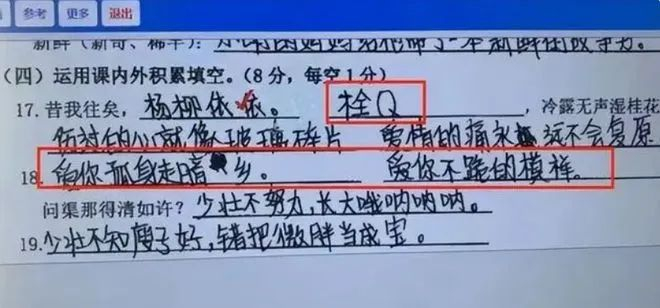 参考 更多 退出
(四) 运用课内外积累填空。(8分,每空1分)
17. 昔我往矣, 杨柳依依。 栓Q , 冷露无声湿桂花
伤过的心就像玻璃碎片 爱情的痛永远不会复原
18. 爱你孤身走暗乡。 爱你不跪的模样。
问渠那得清如许? 少壮不努力,长大哦呐呐呐。
19. 少壮不知瘦子好,错把微胖当成宝。